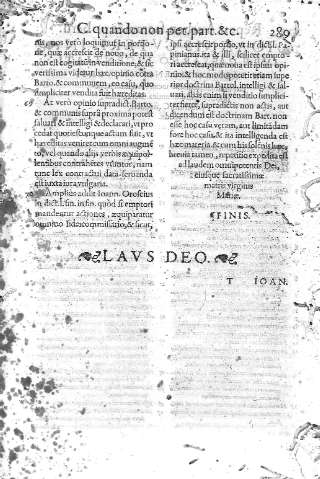 C. quando non pet. part. &c. 289
nis, nos verò loquimur in portio-
ne, quæ accrescit de nouo, de qua
non est cogitatũ in venditione, & sic
verissima videtur hæc opinio cõtra
Barto. & communem, eo casu, quo
simpliciter vendita fuit hæreditas.
At verò opinio supradict. Barto.
& communis suprà proxima potest
saluari & intelligi & declarari, vt pro
cedat quotiescunque actum fuit, vt
hæreditas veniret cum omni augmẽ
to, vel quando alijs verbis æquipol-
lentibus contrahẽtes vtũtur, nam
tunc lex contractui data seruanda
est iuxta iura vulgaria.
Amplius addit Ioann. Oroscius
in dict. l. fin. in fin. quòd si emptori
mandentur actiones, æquiparatur
omnino fideicommissario, & sicut,
ipsi accrescit portio, vt in dict. l. Pa-
pinianus. ita & illi, scilicet empto-
ri accrescat, quæ nota est ipsius opi-
nio: & hoc modo poterit etiam supe
rior doctrina Bartol. intelligi & sal-
uari, aliàs enim si venditio simplici-
ter fieret, supradictis non actis, aut
dicendum est doctrinam Bart. non
esse hoc casu veram, aut limitãdam
fore hoc casu, & ita intelligenda est
hæc materia, & cum his solenis huic
breuis tamen, repetitio exposita est
ad laudem omnipotentis Dei,
eiusque sacratissimæ
matris virginis
Mariæ.
FINIS.
LAVS DEO.
T IOAN.